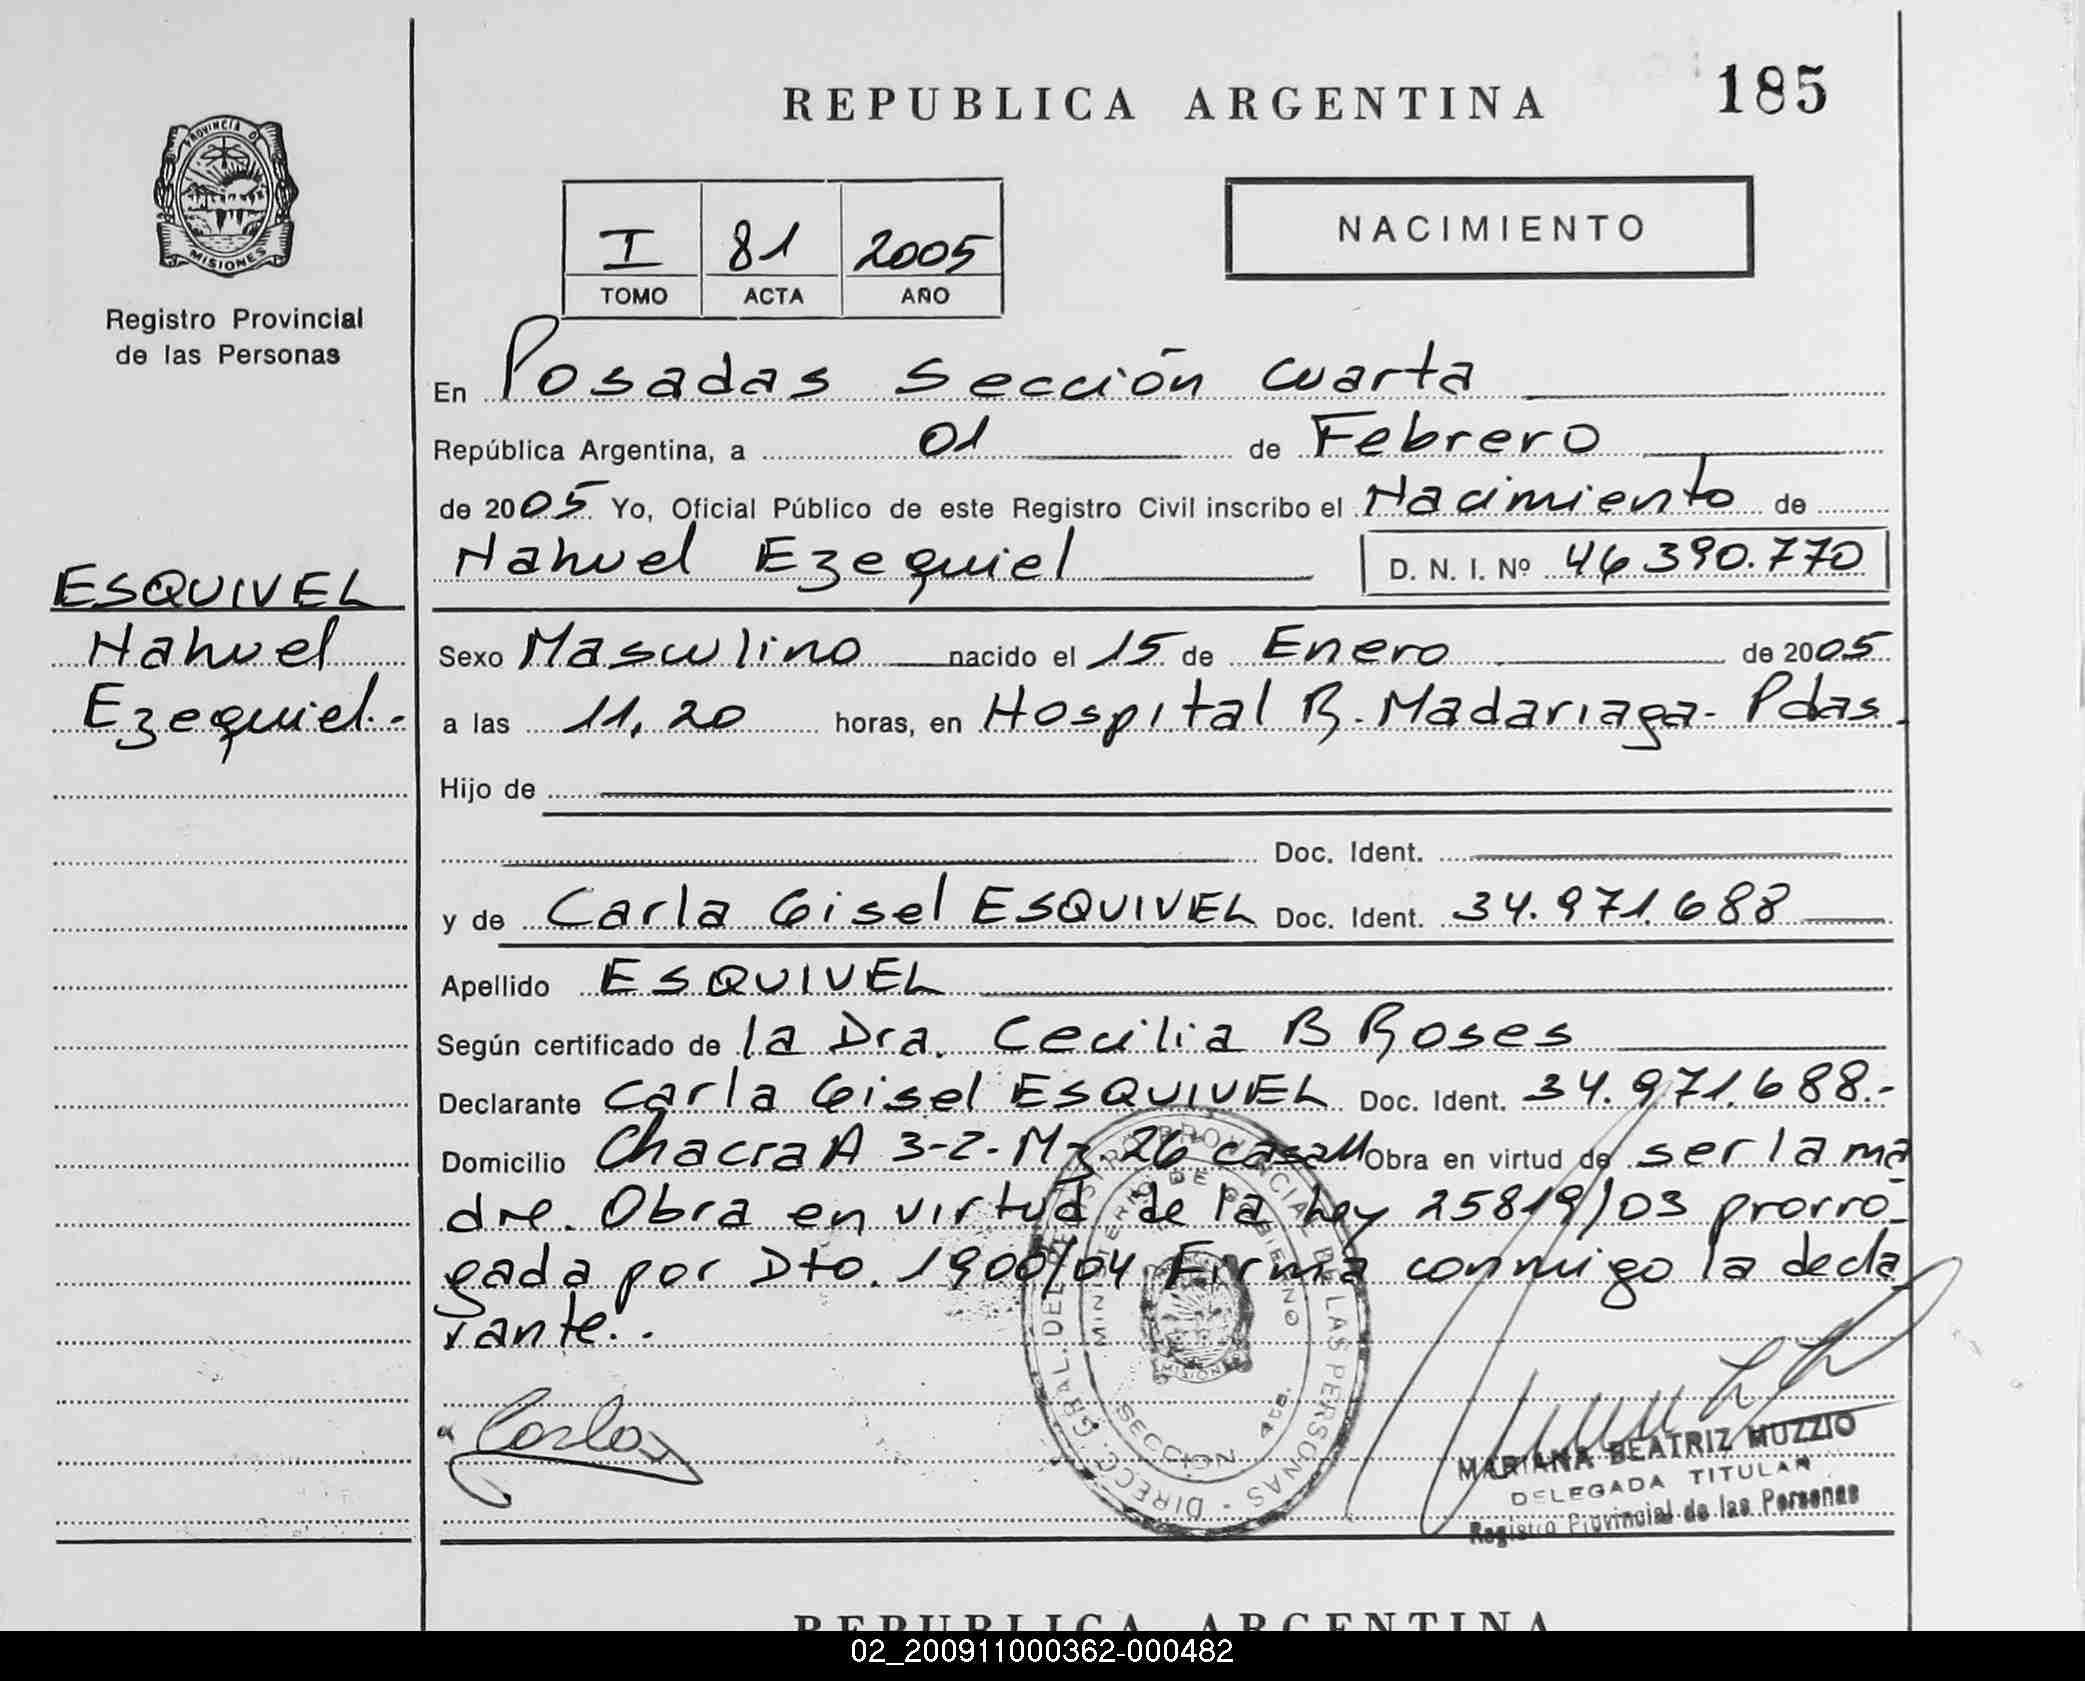 REPUBLICA ARGENTINA
185
PROVINCIA DE
MISIONES
Registro Provincial
de las Personas
I 81 2005
TOMO ACTA AÑO
NACIMIENTO
En Posadas Sección Cuarta
República Argentina, a 01 de Febrero
de 2005 Yo, Oficial Público de este Registro Civil inscribo el Nacimiento de
Nahuel Ezequiel D. N. I. Nº 46390.770
ESQUIVEL
Nahuel
Ezequiel.-
Sexo Masculino nacido el 15 de Enero de 2005
a las 11,20 horas, en Hospital R. Madariaga- Pdas.
Hijo de
Doc. Ident.
y de Carla Gisel ESQUIVEL Doc. Ident. 34.971.688
Apellido ESQUIVEL
Según certificado de la Dra. Cecilia B Roses
Declarante Carla Gisel ESQUIVEL Doc. Ident. 34.971.688.-
Domicilio Chacra A 3-2-Mz. 26 casa Obra en virtud de ser la ma
dre. Obra en virtud de la Ley 25819/03 prorro-
gada por Dto. 1900/04 Firma conmigo la decla
rante.-
DIRECC. GRAL. DEL REGISTRO PROVINCIAL DE LAS PERSONAS
MINISTERIO DE GOBIERNO
MISIONES
SECCION 4ta.
MARIANA BEATRIZ MUZZIO
DELEGADA TITULAR
Registro Provincial de las Personas
REPUBLICA ARGENTINA
02_200911000362-000482